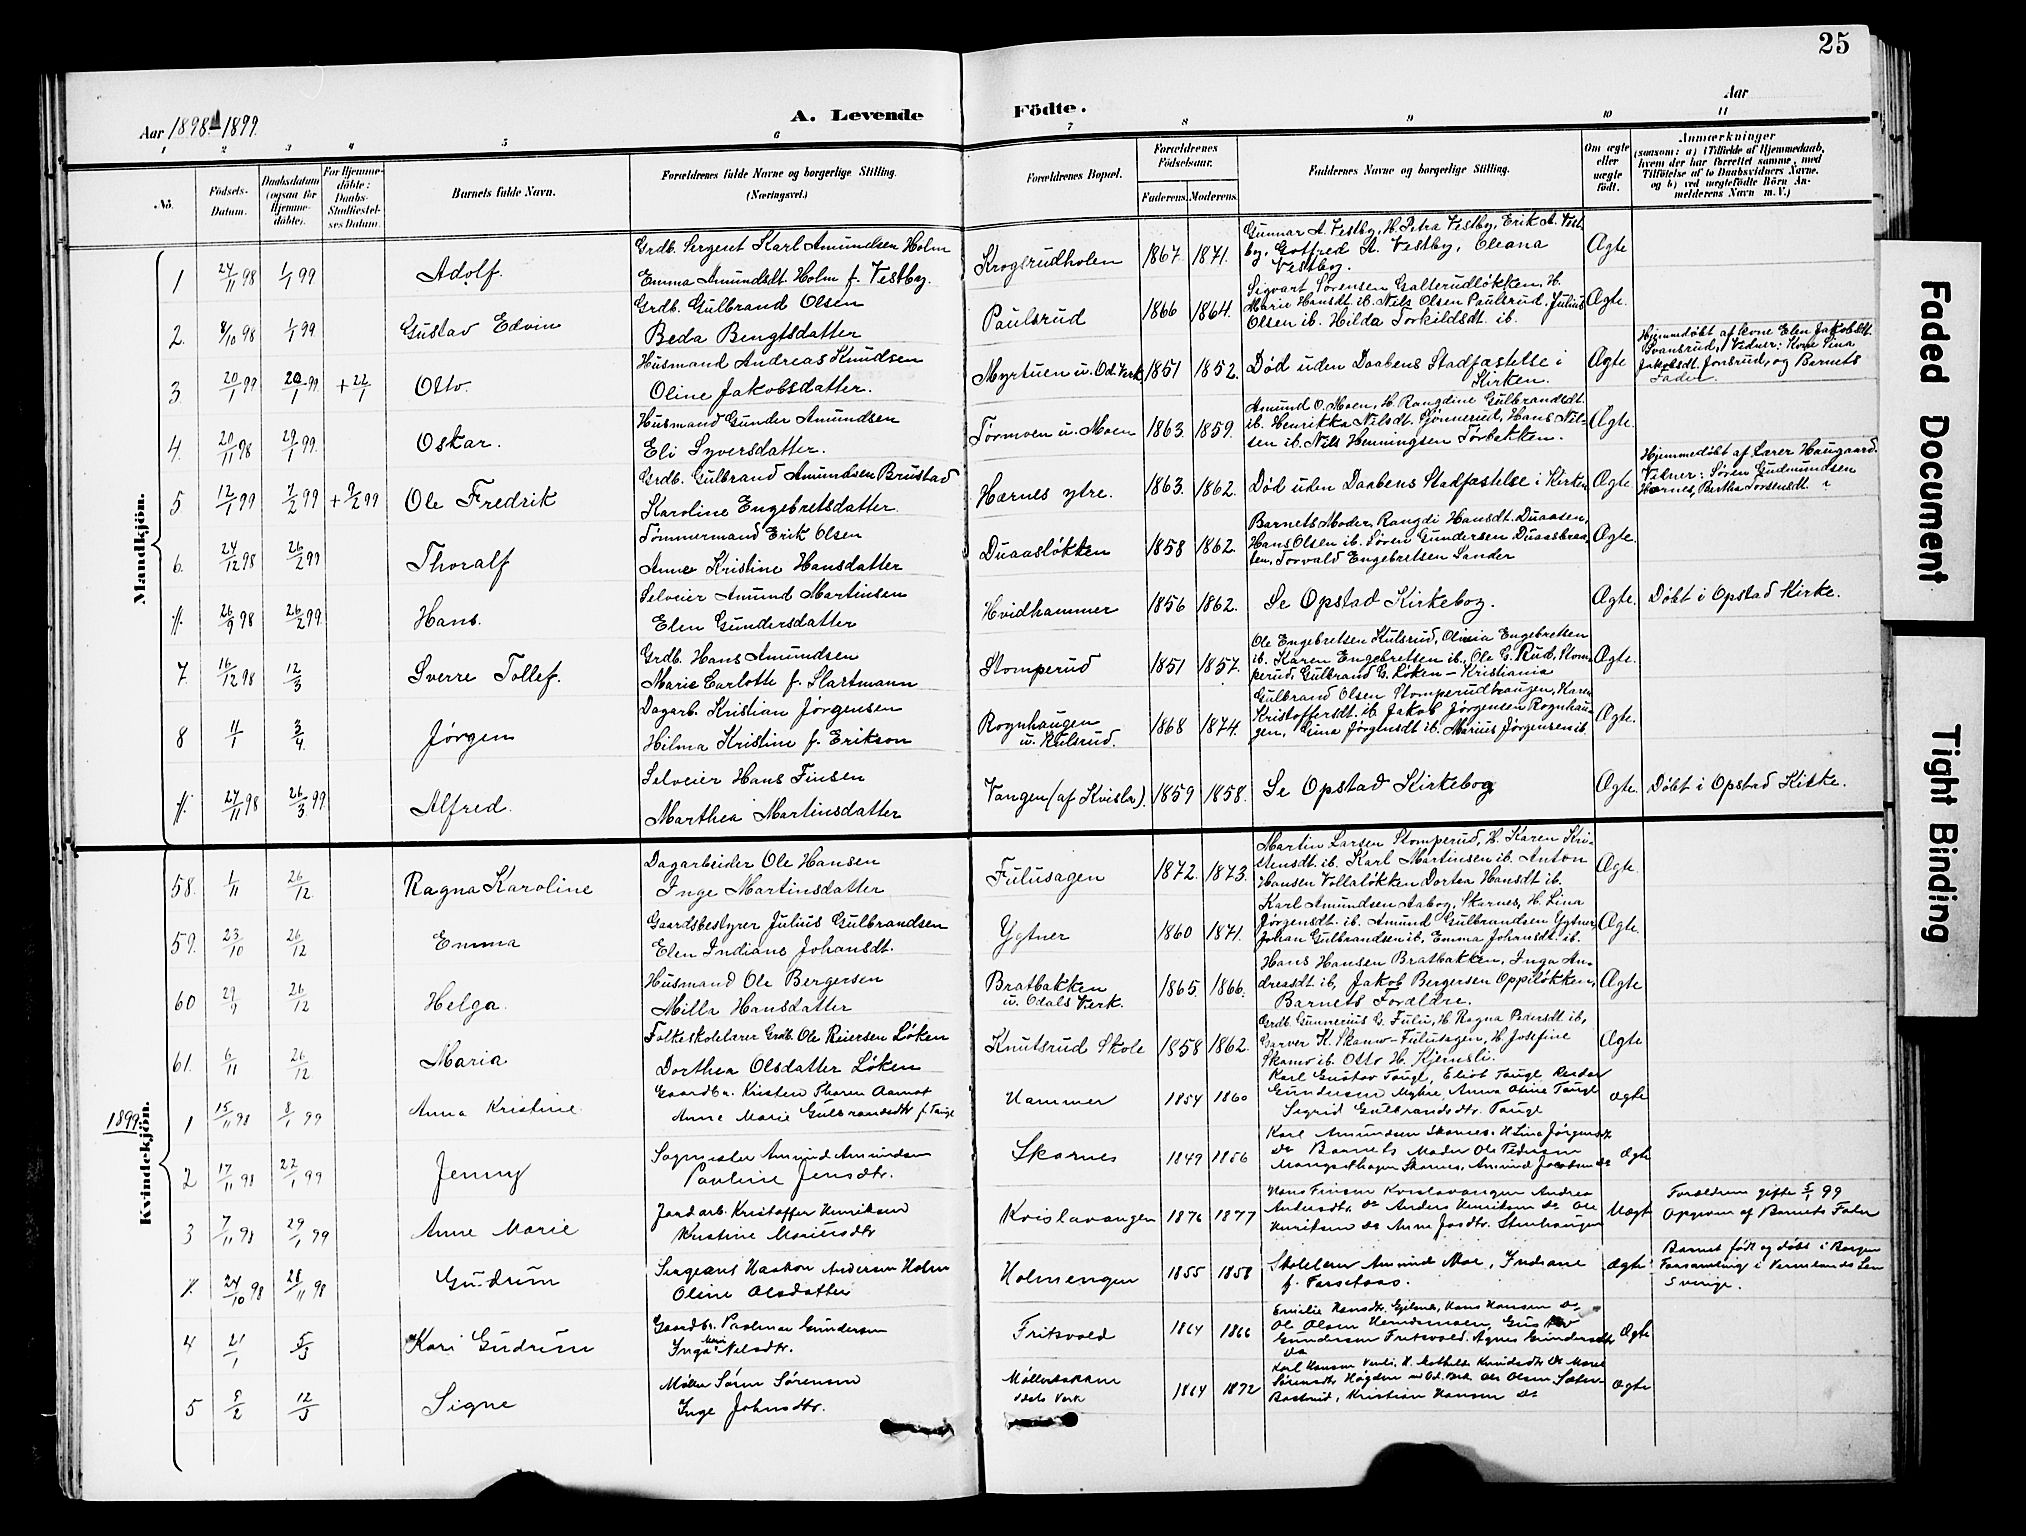 25
Aar 1898-1899.
A. Levende Födte.
Aar
1 2 3 4 5 6 7 8 9 10 11
No.
Födsels-Datum.
Daabsdatum (ogsaa för Hjemme-döbte).
For Hjemme-döbte: Daabs-Stadfæstel-ses Datum.
Barnets fulde Navn.
Forældrenes fulde Navne og borgerlige Stilling. (Næringsvei.)
Forældrenes Bopæl.
Forældrenes Födselsaar.
Faderens. Moderens.
Faddernes Navne og borgerlige Stilling.
Om ægte eller uægte født.
Anmærkninger
(saasom: a) i Tilfælde af Hjemmedaab, hvem der har forrettet samme, med Tilföielse af to Daabsvidners Navne, og b) ved uegtefödte Börn An-melderens Navn m. V.)
Mandkjön.
1 24/11 98 1/1 99 Adolf. Grdb. Sergent Karl Amundsen Holm
Emma Amundsdt. Holm f. Vestby. Krogsrudholen 1867. 1871. Gunnar A. Vestby, H. Petra Vestby, Erik A. Vest-
by, Gotfred A. Vestby, Oleana
Vestby. Ægte
2. 8/10 98 1/1 99 Gustav Edvin Grdb. Gulbrand Olsen
Beda Bengtsdatter Paulsrud 1866 1864. Sigvart Sörensen Galterudløkken, H.
Marie Hansdt. ib. Nils Olsen Paulsrud. Julius
Olsen ib. Hilda Torkildsdt ib. Ægte.
3. 20/1 99 20/1 99 + 22/1 Otto. Husmand Andreas Knudsen
Oline Jakobsdatter. Myrtuen u. Od. Verk 1851 1852. Død uden Daabens Stadfæstelse i
Kirken. Ægte Hjemmedøbt af Kone Elen Jakobsdt.
Svansrud, Vidner: Kone Lina
Jakobsdt. Jonsrud, og Barnets
Fader.
4. 20/11 98 29/1 99. Oskar. Husmand Gunder Amundsen
Eli Syversdatter. Tørmoen u. Moen 1863. 1859. Amund O. Moen, H. Rangdine Gulbrandsdt
ib. Henrikka Nilsdt. Gjønnerud, Hans Nil-
sen ib. Nils Henningsen Torbekken. Ægte.
5 12/1 99 7/2 99 + 9/2 99 Ole Fredrik Grdb. Gulbrand Amundsen Brustad
Karoline Engebretsdatter. Harnes ytre. 1863. 1862. Død uden Daabens Stadfæstelse i Kirken. Ægte. Hjemmedøbt af Lærer Haugaard.
Vidner: Søren Gudmundsen
Harnes, Bertha Torsensdt.
6. 24/12 98 26/2 99 Thoralf Tømmermand Erik Olsen
Anne Kristine Hansdatter Duaasløkken 1858 1862. Barnets Moder, Rangdi Hansdt. Duaasen,
Hans Olsen ib. Søren Gundersen Duaasbraa-
ten, Torvald Engebretsen Sander Ægte.
//. 26/9 98 26/2 99 Hans. Selveier Amund Martinsen
Elen Gundersdatter Hvidhammer 1856 1862. Se Opstad Kirkebog. Ægte. Døbt i Opstad Kirke.
7. 16/12 98 12/3 Sverre Tollef. Grdb. Hans Amundsen
Marie Carlotte f. Slartmann Stomperud 1851 1857. Ole Engebretsen Kulsrud, Olivia Engebretsen
ib. Karen Engebretsen ib. Ole G. Rud, Stom-
perud, Gulbrand G. Løken - Kristiania Ægte.
8 11/1 3/4. Jørgen Dagarb. Kristian Jørgensen
Hilma Kristine f. Erikson Rognhaugen
u. Kulsrud. 1868 1874. Gulbrand Olsen Stomperudhaugen, Karen
Kristoffersdt. ib. Jakob Jørgensen Rognhau-
gen, Lina Jørgensdt ib. Marius Jørgensen ib. Ægte.
//. 27/11 98 26/3 99 Alfred. Selveier Hans Finsen
Marthea Martinsdatter Vangen (af Kvisla). 1859 1858. Se Opstad Kirkebog Ægte. Døbt i Opstad Kirke.
1899.
Kvindekjön.
58. 1/11 26/12. Ragna Karoline Dagarbeider Ole Hansen
Inge Martinsdatter Fulusagen 1872. 1873. Martin Larsen Stomperud, H. Karen Kri-
stensdt. ib. Karl Martinsen ib. Anton
Hansen Vollaløkken Dortea Hansdt ib. Ægte.
59. 23/10 26/12 Emma Gaardsbestyrer Julius Gulbrandsen
Elen Indiane Johansdt. Ygtner 1860 1871. Karl Amundsen Aabog, Skarnes, H. Lina
Jørgensdt. ib. Amund Gulbrandsen Ygtner,
Johan Gulbrandsen ib, Emma Johansdt. ib. Ægte.
60 29/9 26/12 Helga. Husmand Ole Bergersen
Milla Hansdatter Bratbakken
u. Odals Verk. 1865. 1866. Hans Hansen Bratbakken, Inga An-
dreasdt ib, Jakob Bergersen Oppiløkken,
Barnets Forældre. Ægte
61. 6/11 26/12 Maria Folkeskolelærer Grdb. Ole Reiersen Løken
Dorthea Olsdatter Løken Knutsrud Skole 1858 1862. Grdb. Gunnerius G. Fulu, H. Ragna Pedersdt ib,
Garver K. Skanso-Fulusagen, H. Josefine
Skanso ib. Otto H. Kjernsli. Ægte
1 15/11 98 8/1 99 Anna Kristine Gaardbr. Kristen Thoren Aamot
Anne Marie Gulbrandsdtr f. Tauge Hammer 1854 1860 Karl Gustav Tauge, Eliot Tauge Reidar
Gundersen Myhre, Anna Oline Tauge
Sigrid Gulbrandsdtr. Tauge ægte
2 17/11 98 22/1 99 Jenny Sagmester Amund Amundsen
Pauline Jensdtr. Skarnes 1849 1856 Karl Amundsen Skarnes. H Lina Jørgensdt
do Barnets Moder Ole Pedersen
Mangset Skarnes, Amund Jacobsen do Ægte
3 7/11 98 29/1 99 Anne Marie Jordarb. Kristoffer Henriksen
Kristine Mariusdtr Kvislavangen 1876 1877 Hans Finsen Kvislavangen Andrea
Andersdtr. do Anders Henriksen do Ole
Henriksen do Anne Uægt Forældrene gifte 5/1 99
Opgiven af Barnets Fader
//. 24/10 98 28/11 98 Gudrun Sergeant Haakon Andersen Holm
Oline Olsdatter Holmengen 1855 1858 Skolelærer Amund Moe, Indiane
f. Farsetaas. Ægte Barnet født og døbt i Borgen
Forsamling i Vermlands Len
Sverige.
4 21/1 5/3 Kari Gudrun Gaardbr. Paulinar Gundersen
Inga Mari Nilsdtr. Fritsvold 1864 1866 Emilie Hansdtr. Hans Hansen do
Ole Olsen Gustav
Gundersen Fritsvold. Agnes Gundersdtr
do Ægte
5 5/2 12/3 Signe Møller Søren Sørensen
Inge Johnsdtr. Møllerstykket
Odals Verk 1864 1872 Karl Hansen H. Mathilde Knudsdtr do Marie
Sørensdtr Høgden u. Od. Verk Ole Olsen Sæter-
Bastrud, Kristian Hansen do Ægte
Faded Document
Tight Binding